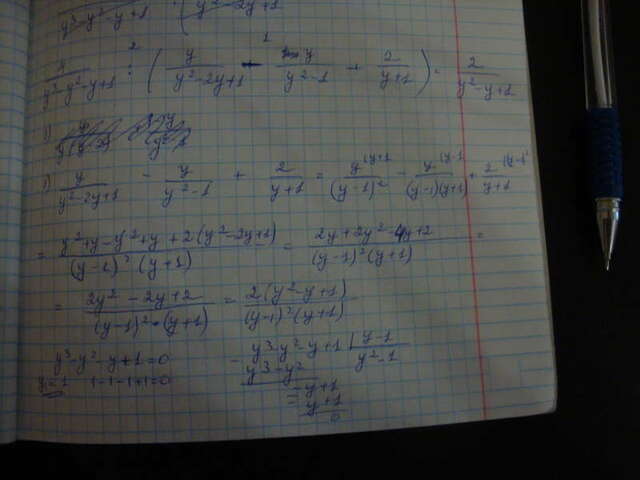 y³-y²-y+1 : ( y²-2y+1
4/(y³-y²-y+1) : ( y/(y²-2y+1) - y/(y²-1) + 2/(y+1) ) = 2/(y²-y+1)
1) y/(y²-2y+1) - y/(y²-1) + 2/(y+1) = y^(y+1/(y-1)² - y^(y-1/((y-1)(y+1)) + 2/(y+1)
= (y²+y-y²+y+2(y²-2y+1))/((y-1)²(y+1)) = (2y+2y²-4y+2)/((y-1)²(y+1)) =
= (2y²-2y+2)/((y-1)²·(y+1)) = 2(y²-y+1)/((y-1)²(y+1))
y³-y²-y+1=0
y=1 1-1-1+1=0
- y³-y²-y+1 | y-1
y³-y² y²-1
-y+1
-y+1
0